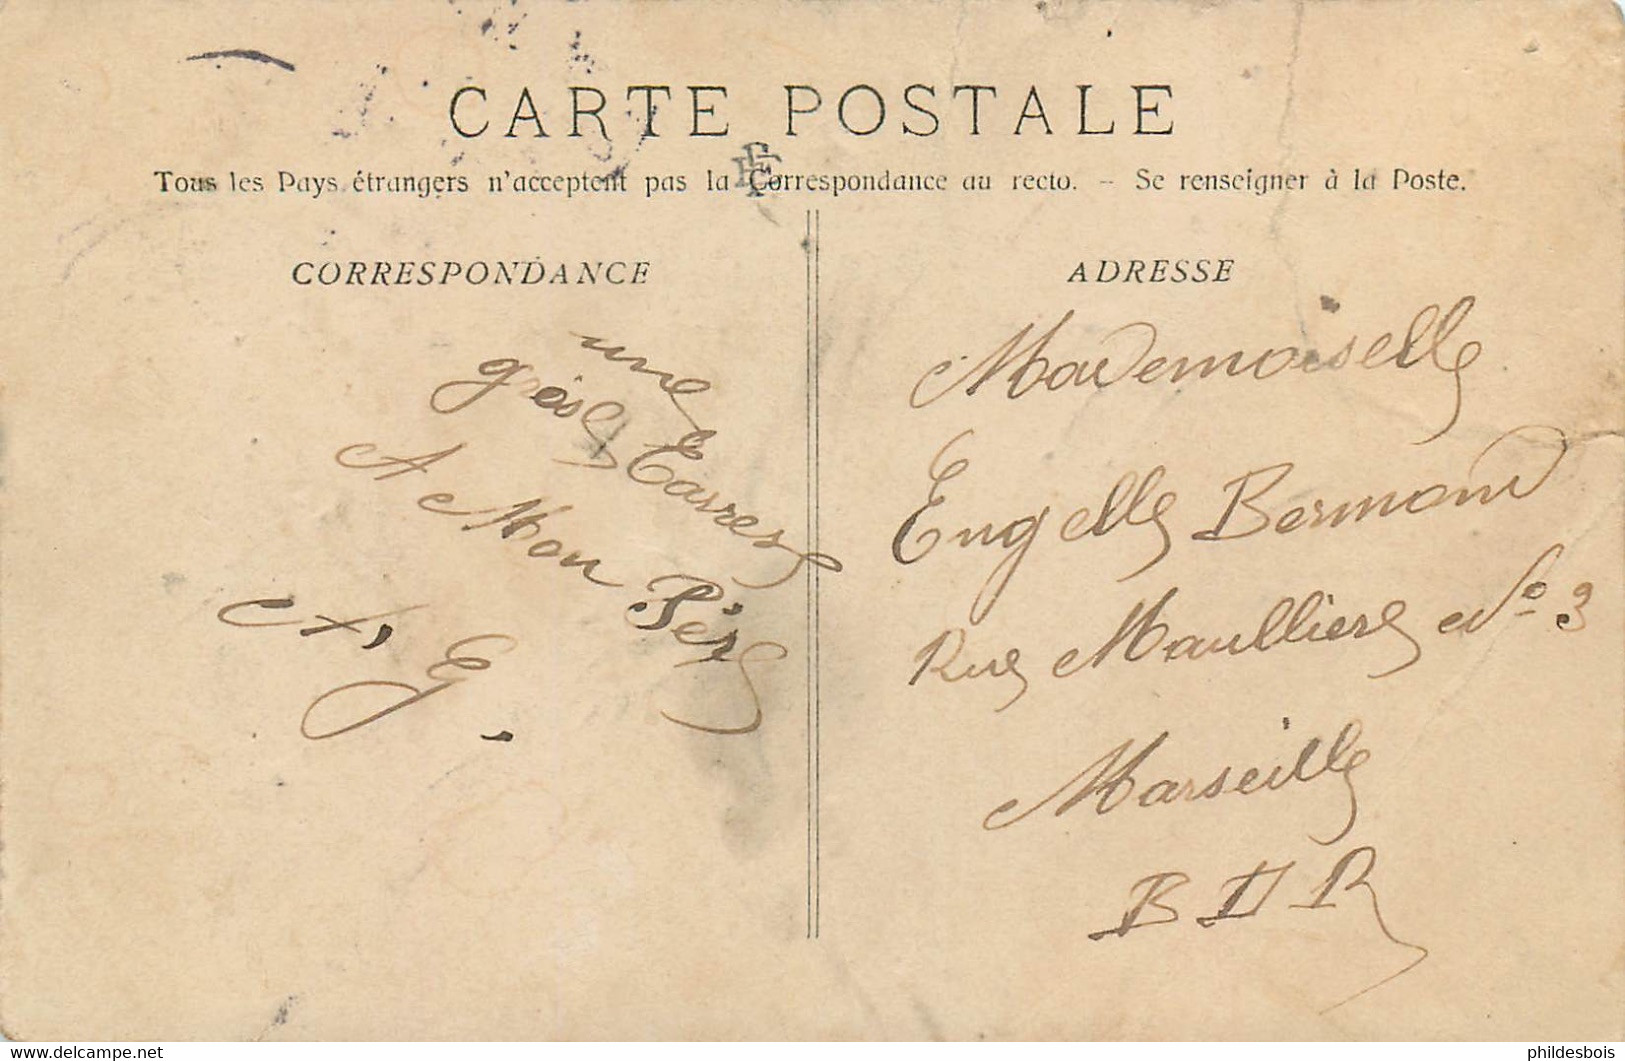 CARTE POSTALE
Tous les Pays étrangers n'acceptent pas la Correspondance au recto. - Se renseigner à la Poste.
CORRESPONDANCE
une
grose Carresse
A Mon Père
G.
ADRESSE
Mademoiselle
Engelle Bermond
Rue Maulliere No 3
Marseille
B D R
www.delcampe.net
phildesbois